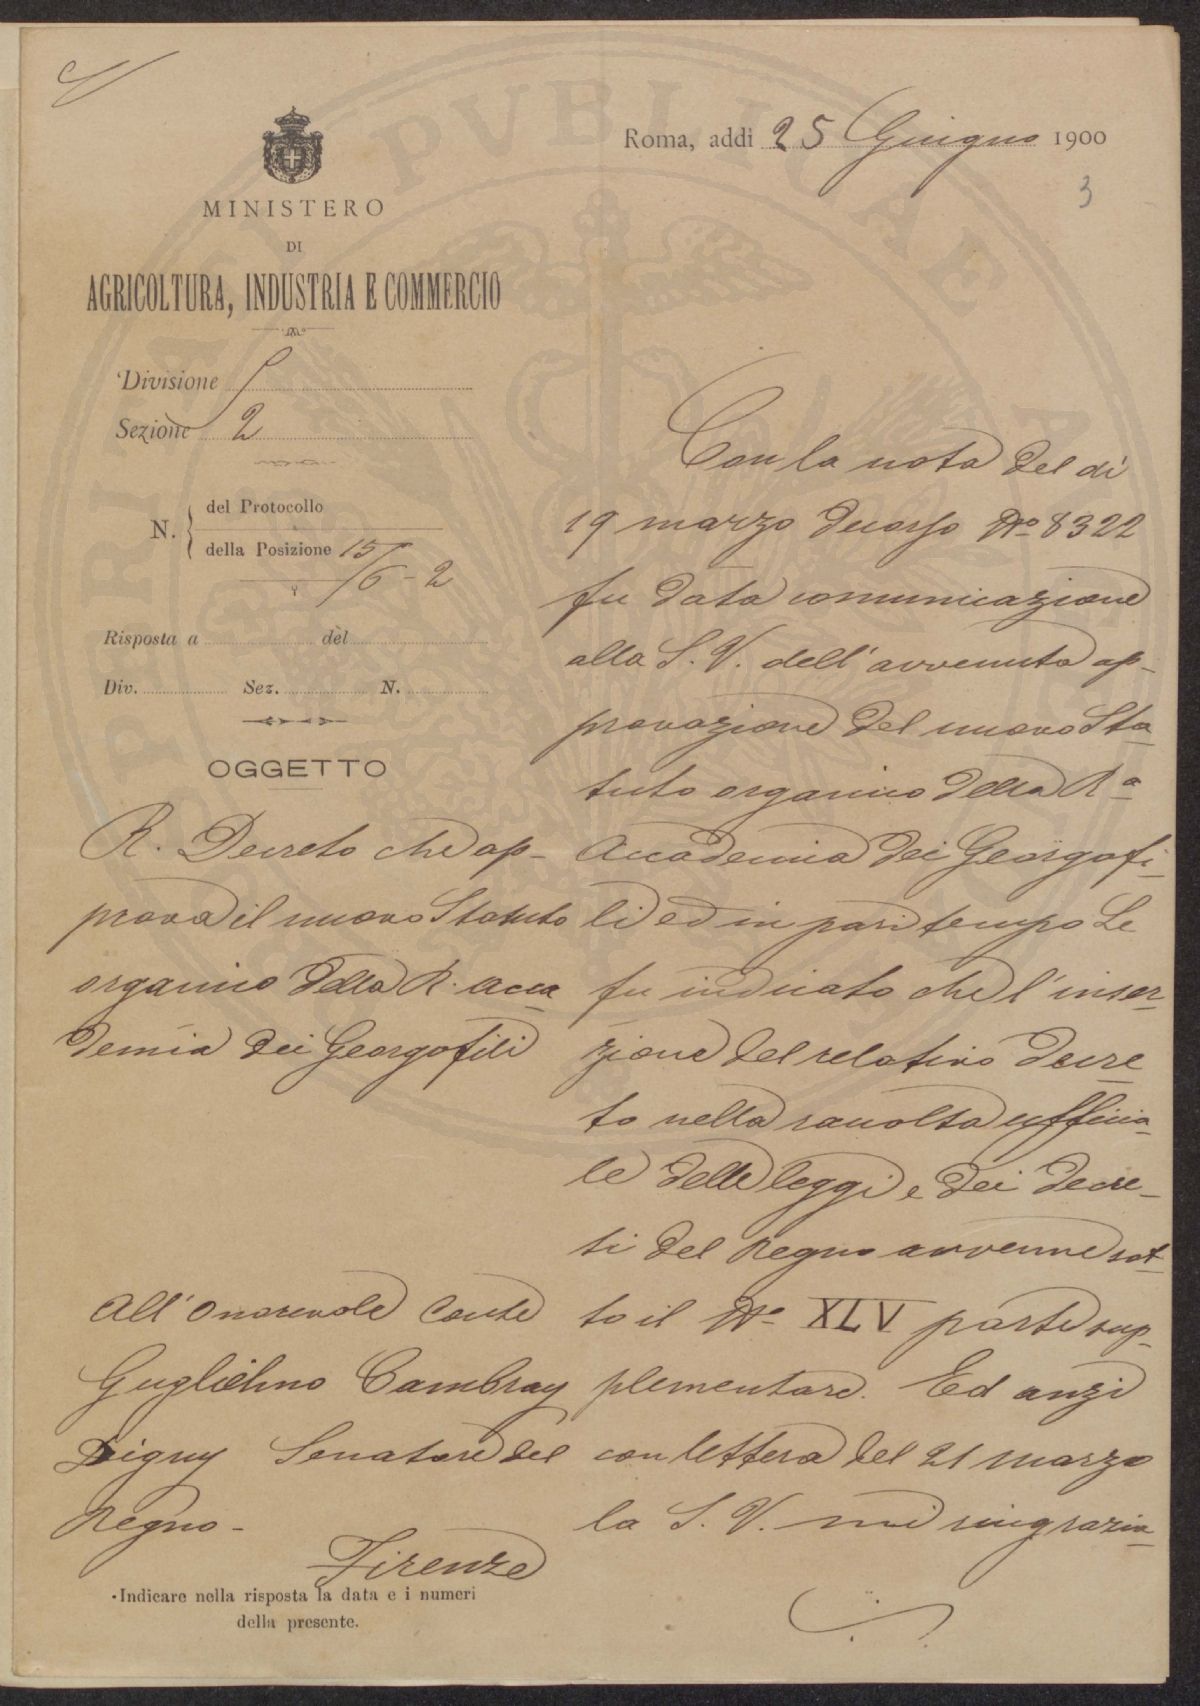 Roma, addì 25 Giugno 1900
3
MINISTERO
DI
AGRICOLTURA, INDUSTRIA E COMMERCIO
Divisione
Sezione 2
N.
del Protocollo
della Posizione 15/6-2
Risposta a del
Div. Sez. N.
OGGETTO
R. Decreto che ap-
prova il nuovo Statuto
organico della R. Acca
demia dei Georgofili
All' Onorevole Conte
Guglielmo Cambray
Digny Senatore del
Regno -
Firenze
Indicare nella risposta la data e i numeri
della presente.
Con la nota del dì
19 marzo decorso No. 8322
fu data comunicazione
alla S. V. dell' avvenuta ap-
provazione del nuovo Sta
tuto organico della Ra
Accademia dei Georgofi-
li ed in pari tempo Le
fu indicato che l' inser-
zione del relativo decre
to nella raccolta ufficia-
le delle leggi e dei decre-
ti del Regno avvenne sot-
to il No. XLV parte sup-
plementare. Ed anzi
con lettera del 21 marzo
la S. V. mi ringrazia-